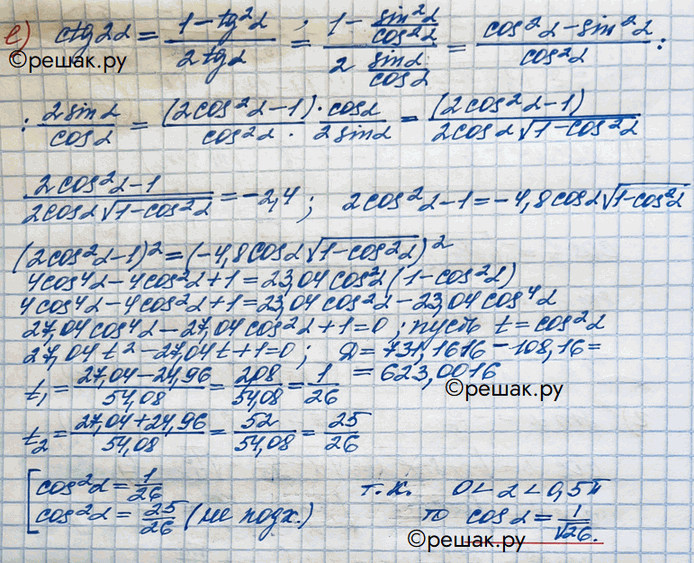 е) ctg2α = (1-tg²α)/(2tgα) = (1 - sin²α/cos²α)/(2 sinα/cosα) = (cos²α-sin²α)/cos²α :
©решак.ру
: 2sinα/cosα = (2cos²α-1)/cos²α · cosα/2sinα = (2cos²α-1)/(2cosα√(1-cos²α))
(2cos²α-1)/(2cosα√(1-cos²α)) = -2,4 ; 2cos²α-1 = -4,8cosα√(1-cos²α)
(2cos²α-1)² = (-4,8cosα√(1-cos²α))²
4cos⁴α-4cos²α+1=23,04cos²α(1-cos²α)
4cos⁴α-4cos²α+1=23,04cos²α-23,04cos⁴α
27,04cos⁴α-27,04cos²α+1=0 ; пусть t=cos²α
27,04t²-27,04t+1=0 ; Д=731,1616-108,16=
=623,0016
t₁ = (27,04-24,96)/54,08 = 2,08/54,08 = 1/26
©решак.ру
t₂ = (27,04+24,96)/54,08 = 52/54,08 = 25/26
[cos²α = 1/26 т.к. 0<α<0,5π
cos²α = 25/26 (не подх.) то cosα = 1/√26.
©решак.ру